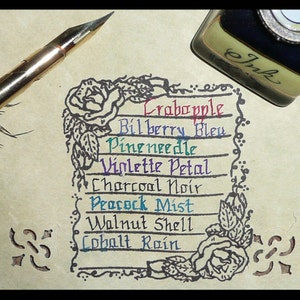 Ink
Crabapple
Bilberry Bleu
Pineneedle
Violette Petal
Charcoal Noir
Peacock Mist
Walnut Shell
Cobalt Rain